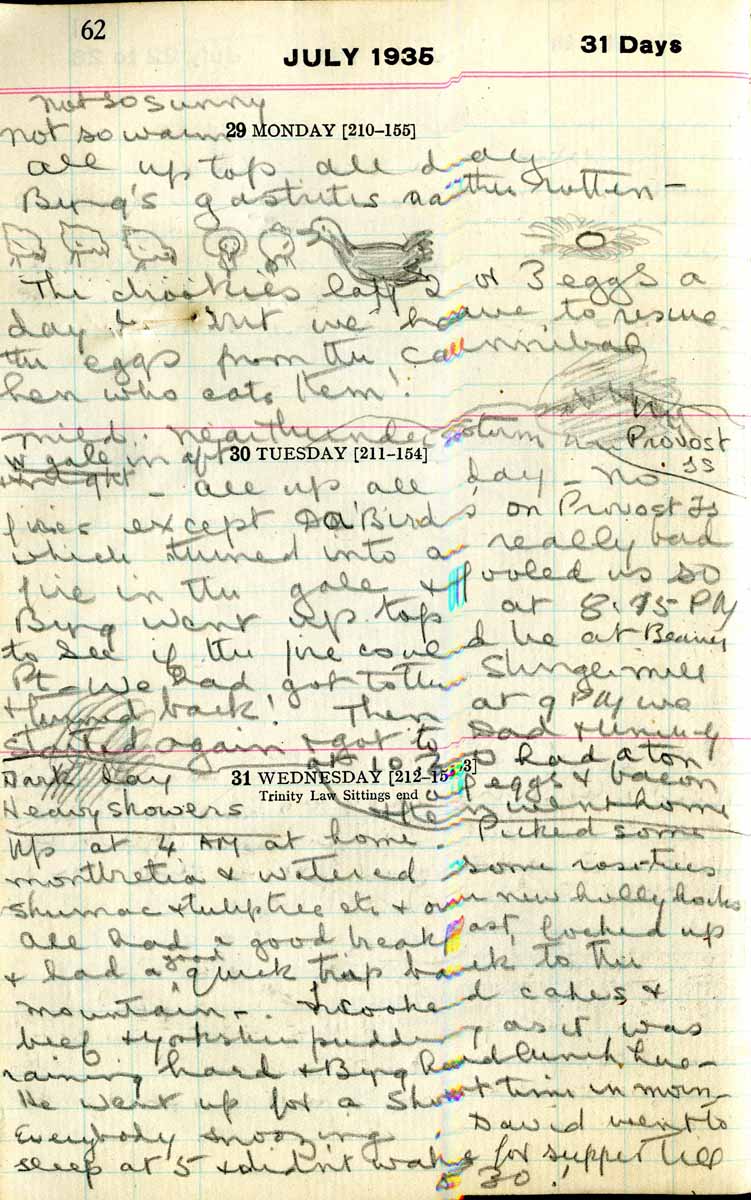 62
JULY 1935
31 Days
not so sunny
not so warm
29 MONDAY [210–155]
all up top all day
Byng's gastritis rather rotten –
The chookies lay 2 or 3 eggs a
day but we have to rescue
the eggs from the cannibal
hen who eats them!
mild. near thunderstorm
Provost
Is
W gale in aft
30 TUESDAY [211–154]
all up all day – no
fires except Bird's on Provost Is
which turned into a really bad
fire in the gale & fooled us so
Byng went up top at 8.45 PM
to see if the fire could be at Beaver
Pt – we had got to the Shingle mill
& turned back! Then at 9 PM we
started again & got to Dad &
at 10 & had a ton
31 WEDNESDAY [212–153]
Trinity Law Sittings end
Dark day
Heavy showers
of eggs & bacon
& then went home
Up at 4 AM at home. Picked some
montbretia & watered some rose-trees
shumac & tuliptree etc & our new hollyhocks
all had a good breakfast, locked up
& had a good quick trip back to the
mountain –. I cooked cakes &
beef & yorkshire pudding, as it was
raining hard & Byng had lunch here –
He went up for a short time in morn –
Everybody snoozing. David went to
sleep at 5 & didn't wake for supper till
8 30!